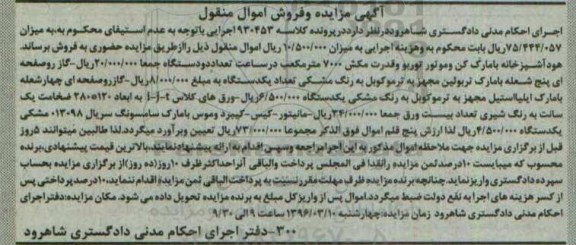 آگهی مزایده وفروش اموال منقول
اجرای احکام مدنی دادگستری شاهرود در نظر دارد در پرونده کلاسه ۹۳۰۴۵۳ اجرایی باتوجه به عدم استیفای محکوم به، به میزان
۷۵/۴۴۴/۰۵۷ ریال بابت محکوم به وهزینه اجرایی به میزان ۱۰/۵۰۰/۰۰۰ ریال اموال منقول ذیل رااز طریق مزایده حضوری به فروش برساند.
هود آشپزخانه بامارک کن وموتور توربو وقدرت مکش ۷۰۰۰ مترمکعب در ساعت تعداد دو دستگاه جمعا ۲۰/۰۰۰/۰۰۰ ریال-گاز روصفحه
ای پنج شعله بامارک تریولین مجهز به ترموکوبل به رنگ مشکی تعداد یکدستگاه به مبلغ ۸/۰۰۰/۰۰۰ ریال-گاز روصفحه ای چهارشعله
بامارک ایلیااستیل مجهز به ترموکوبل به رنگ مشکی یکدستگاه ۶/۵۰۰/۰۰۰ ریال-ورق های کلاس به ابعاد ۱۳۰*۲۸۰ ضخامت یک
سانت به رنگ شیری تعداد بیست ورق جمعا ۳۴/۰۰۰/۰۰۰ ریال-مانیتور-کیس-کیبورد وموس بامارک سامسونگ سریال ۱۳۰۹۸ مشکی
یکدستگاه ۴/۵۰۰/۰۰۰ ریال لذا ارزش پنج قلم اموال فوق الذکر مجموعا ۷۳/۰۰۰/۰۰۰ ریال تعیین وبرآورد میگردد.لذا طالبین میتوانند ۵روز
قبل از برگزاری مزایده جهت ملاحظه اموال مذکور به این اجرا مراجعه وسپس اقدام به ارائه پیشنهاد نمایند.بالاترین قیمت پیشنهادی،برنده
محسوب که میبایست ۱۰درصد ثمن مزایده رانقدا فی المجلس پرداخت والباقی آنراحداکثر ظرف ۱۰روز(ده روز)از برگزاری مزایده بحساب
سپرده دادگستری واریز نماید.چنانچه برنده مزایده ظرف مهلت مقرر نسبت به پرداخت الباقی ثمن مزایده اقدام ننماید،۱۰درصد پرداختی پس
از کسر هزینه های اجرا به نفع دولت ضبط میگردد.اموال پس از واریز کل مبلغ به برنده مزایده تحویل داده می شود. مکان مزایده:دفتر اجرای
احکام مدنی دادگستری شاهرود زمان مزایده:چهارشنبه ۱۳۹۶/۰۳/۱۰ ساعت ۹ الی ۹/۳۰
۳۰۰-دفتر اجرای احکام مدنی دادگستری شاهرود